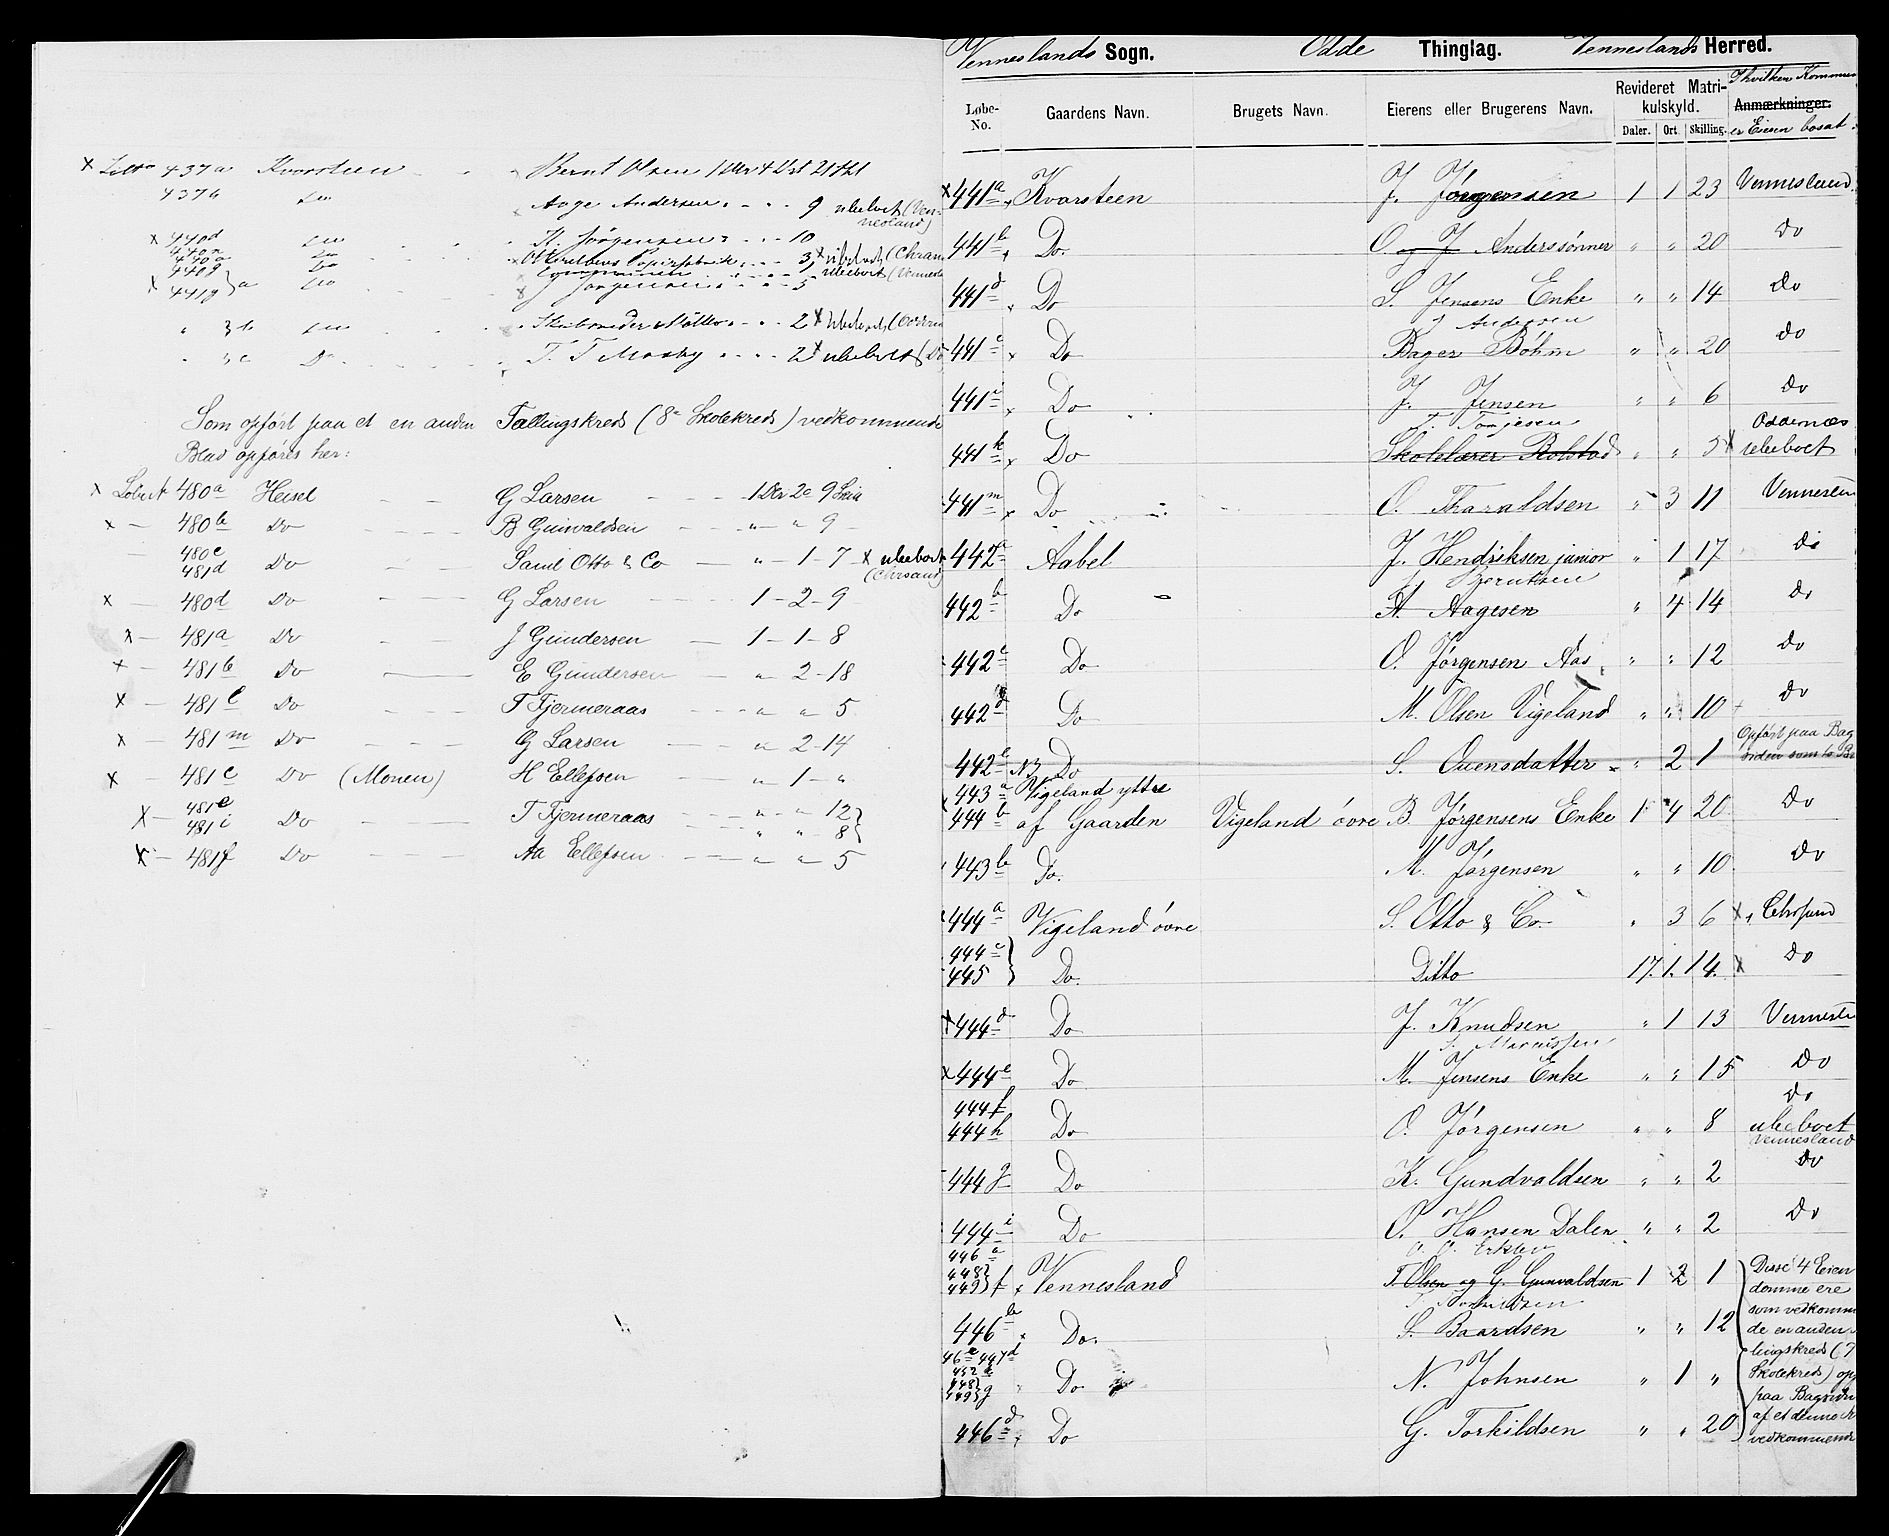 x Løbno 437a Kvarsteen Bernt Olsen 1 Dlr 4 Ort 21 skl
437b Do Aage Andersen " " 9 ubeboet (Ven-
nesland)
x 440d Do H. Jørgensen " " 10
440n Do Papirfabrik " " 3 x ubeboet (Chrsand
440g Do " " " ubeboet (Vennesla
x 441g } a Do J Jørgensen " " 5
" 3b Do " " 2 x ubeboet (Oddernæs
" 3c Do T. T Mosby " " 2 x ubeboet (Do
Som opført paa et en anden Tællingskreds (8de Skolekreds) vedkommende
Blad opføres her:
x Løbno 480a Heisel G Larsen 1 Dlr 2 o 9 Skill
x — 480b Do B Gunvaldsen " — " 9 —
— 480c
481d Do Saml Otto & Co — " — 1 — 7 x ubeboet
(Chrsand)
x — 480d Do G Larsen 1 — 2 — 9
x — 481a Do J Gundersen — 1 — 1 — 8
x — 481b Do E Gundersen — " 2 — 18
x — 481c Do T Fjermeraas — " " 5
x — 481m Do G Larsen — " 2 — 14
x — 481c Do (Monen) H Ellefsen — " 1 — "
x — 481e
481i Do T Fjermeraas — " " 12 }
" " 8 }
x — 481f Do Aa Ellefsen — " " 5
Venneslands Sogn. Odde Thinglag. Venneslands Herred.
Løbe-No. Gaardens Navn. Brugets Navn. Eierens eller Brugerens Navn. Revideret Matri-kulskyld. Daler. Ort Skilling. I hvilken Kommun
Anmærkninger.
er Eieren bosat.
x 441a Kvarsteen J. Jørgensen 1 1 23 Vennesland
441b Do. O. og J Anderssønner " " 20 Do
441d Do S. Jensens Enke " " 14 Do
J Andersen
441e Do Bager Bøhm " " 20 Do
441i Do J. Jensen " " 6 Do
T. Tonjesen Oddernæs
441k Do Skolelærer Rolstad " " 5 x ubeboet
441m Do O. Tharaldsen " 3 11 Vennesla
442a Aabel J. Hendriksen junior " 1 17 Do
Berntsen
442b Do A. Aagesen " 4 14 Do
442c Do O. Jørgensen Aas " " 12 Do
442d Do M. Olsen Vigeland " " 10 Do
Opført paa Bag
442e N3 Do S. Ouensdatter " 2 1 siden som
443a Vigeland yttre
444b af Gaarden Vigeland øvre B. Jørgensens Enke 1 4 20 Do
443b Do. M. Jørgensen " " 10 Do
444a Vigeland øvre S. Otto & Co " 3 6 x Chrsand
444c
445 } Do. Ditto 17. 1. 14. x Do
x 444d Do J. Knudsen " 1 13 Vennesla
x 444e Do M. Jensens Enke " " 15 Do
444f Do
444h Do O. Jørgensen " " 8 ubeboet
Vennesland
444g Do K. Gundvaldsen " " 2 Do
444i Do O. Hansen Dalen " " 2 Do
446a
448 }
449 } f Vennesland T. Olsen og G. Gunvaldsen 1 2 1 Disse 4 Eien
domme ere
som vedkommen
446b Do. S. Baardsen " " 12 de en anden
lingskreds (7
46c 447d
452
448 }
449 } g Do N. Johnsen " 1 " Skolekreds) op
paa Bagsiden
446d Do G. Torkildsen " " 20 af et denne
vedkommende